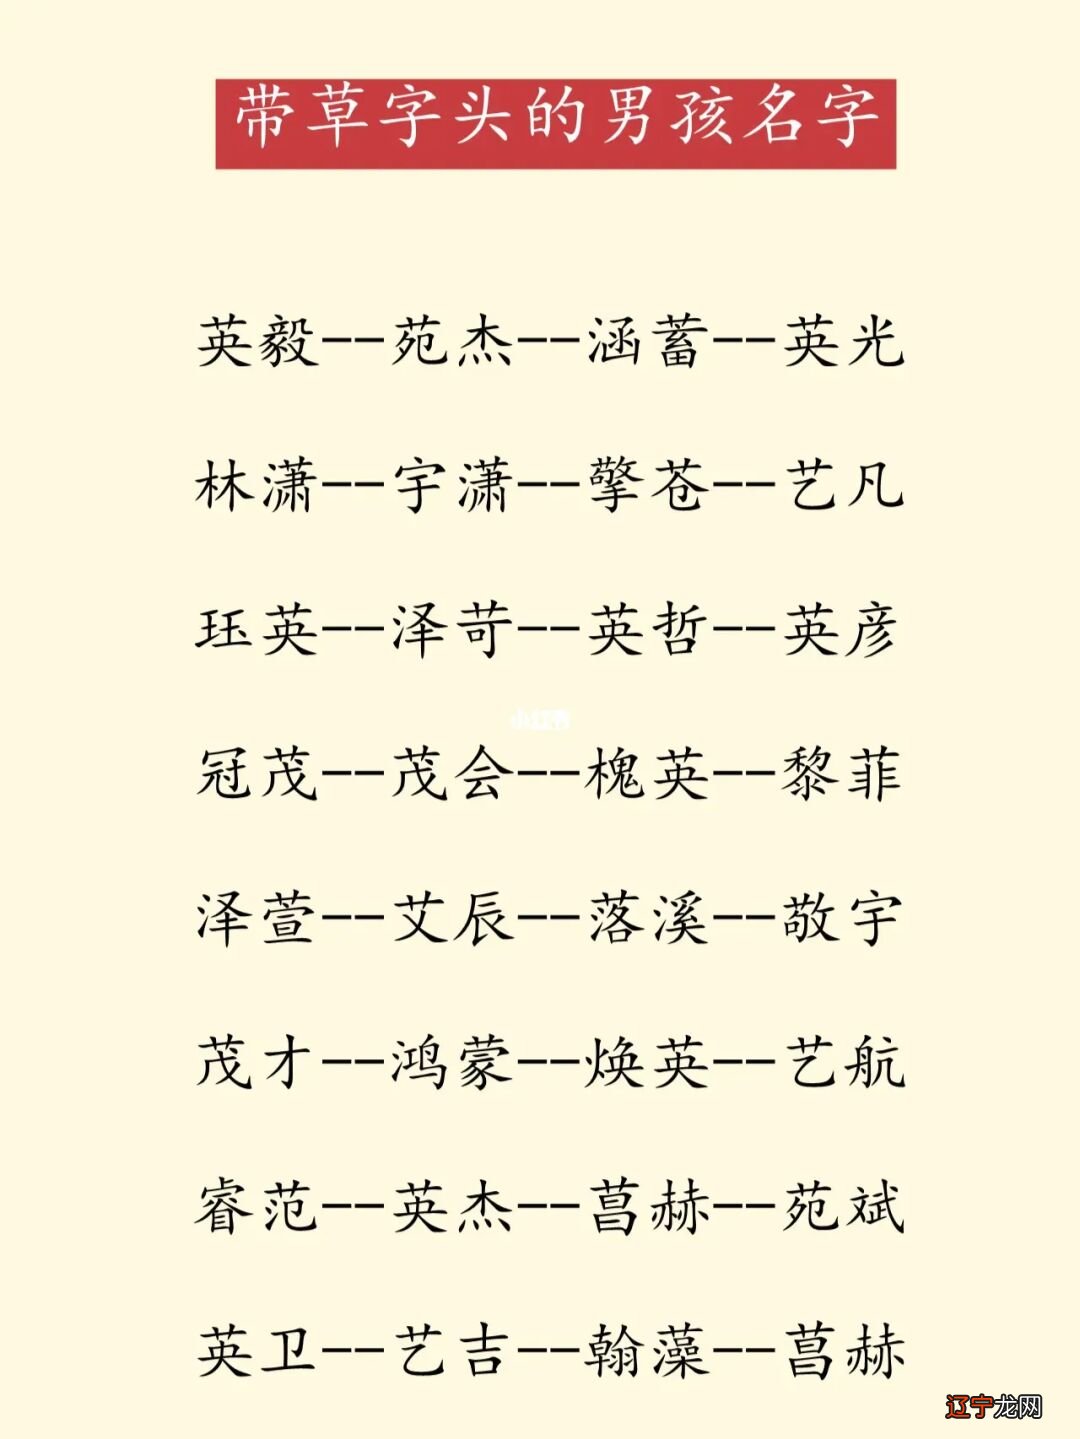 带草字头的男孩名字
英毅--苑杰--涵蓄--英光
林潇--宇潇--擎苍--艺凡
珏英--泽苛--英哲--英彦
冠茂--茂会--槐英--黎菲
小红书
泽萱--艾辰--落溪--敬宇
茂才--鸿蒙--焕英--艺航
睿范--英杰--菖赫--苑斌
英卫--艺吉--翰藻--菖赫
辽宁龙网